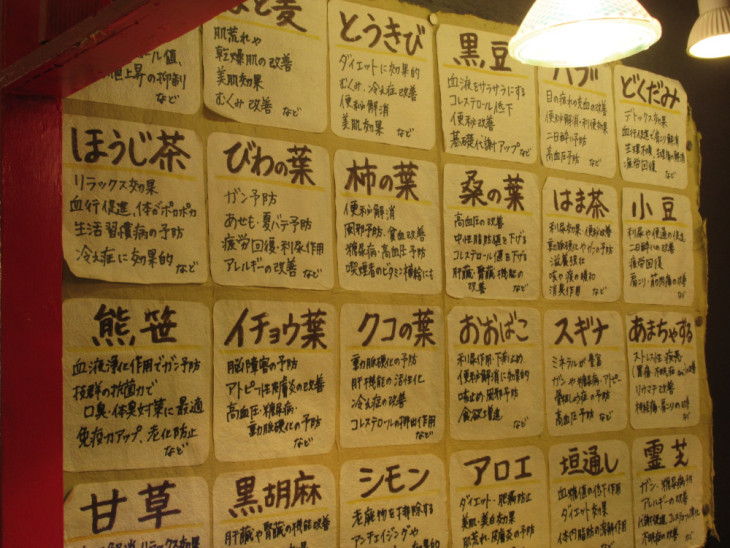 上昇の抑制
など
はと麦
肌荒れや
乾燥肌の改善
美肌効果
むくみ改善 など
とうきび
ダイエットに効果的
むくみ、冷え症改善
便秘解消
美肌効果 など
黒豆
血液をサラサラにする
コレステロール低下
便秘改善
基礎代謝アップなど
目の疲れや充血の改善
便秘解消・利便効果
二日酔い予防
高血圧予防 など
どくだみ
デトックス効果
疲労回復 など
ほうじ茶
リラックス効果
血行促進、体がポカポカ
生活習慣病の予防
冷え症に効果的
など
びわの葉
ガン予防
あせも・夏バテ予防
疲労回復・利尿作用
アレルギーの改善 など
柿の葉
便秘解消
風邪予防・貧血改善
糖尿病・高血圧予防
喫煙者のビタミン補給にも
桑の葉
高血圧の改善
中性脂肪値を下げる
コレステロール値を下げる
肝臓・腎臓機能の
改善 など
はま茶
利尿効果・便秘改善
動脈硬化やガンの予防
滋養強壮
咳や痰の緩和
消臭作用 など
小豆
利尿や便通の促進
二日酔いの改善
疲労回復
肩こり・筋肉痛の改善
など
熊笹
血液浄化作用でガン予防
抜群の抗菌力で
口臭・体臭対策に最適
免疫力アップ、老化防止
など
イチョウ葉
脳障害の予防
アトピー性皮膚炎の改善
高血圧・糖尿病・
動脈硬化の予防
など
クコの葉
動脈硬化の予防
肝機能の活性化
冷え症の改善
コレステロールの排出作用
など
おおばこ
利尿作用・下痢止め、
便秘解消に効果的
咳止め・風邪予防
食欲増進
など
スギナ
ミネラルが豊富
ガンや糖尿病・アトピー
骨粗しょう症の予防
高血圧予防 など
あまちゃづる
ストレス性疾患
リウマチ改善
神経痛・肩こりの改善
など
甘草
リラックス効果
黒胡麻
肝臓や腎臓の機能改善
シモン
老廃物を排除する
アンチエイジングや
アロエ
ダイエット・肥満防止
美肌・美白効果
肌荒れ・皮膚炎の予防
垣通し
血糖値の低下作用
ダイエット効果
体内脂肪の溶解作用
霊芝
ガン・糖尿病予防
アレルギーの改善
不眠症の改善